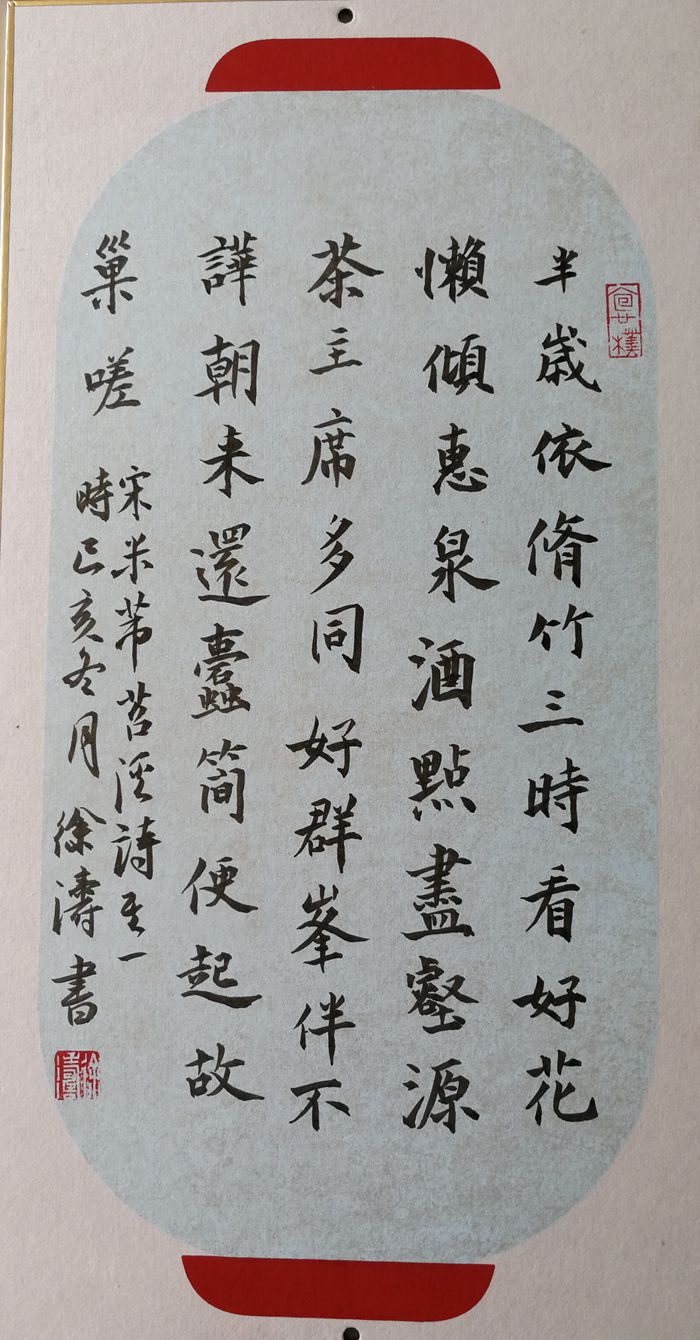 半歳依脩竹三時看好花
懶傾惠泉酒點盡壑源
茶主席多同好群峯伴不
譁朝来還蠹簡便起故
巢嗟
宋米芾苕溪詩其一
時己亥冬月徐濤書
徐濤